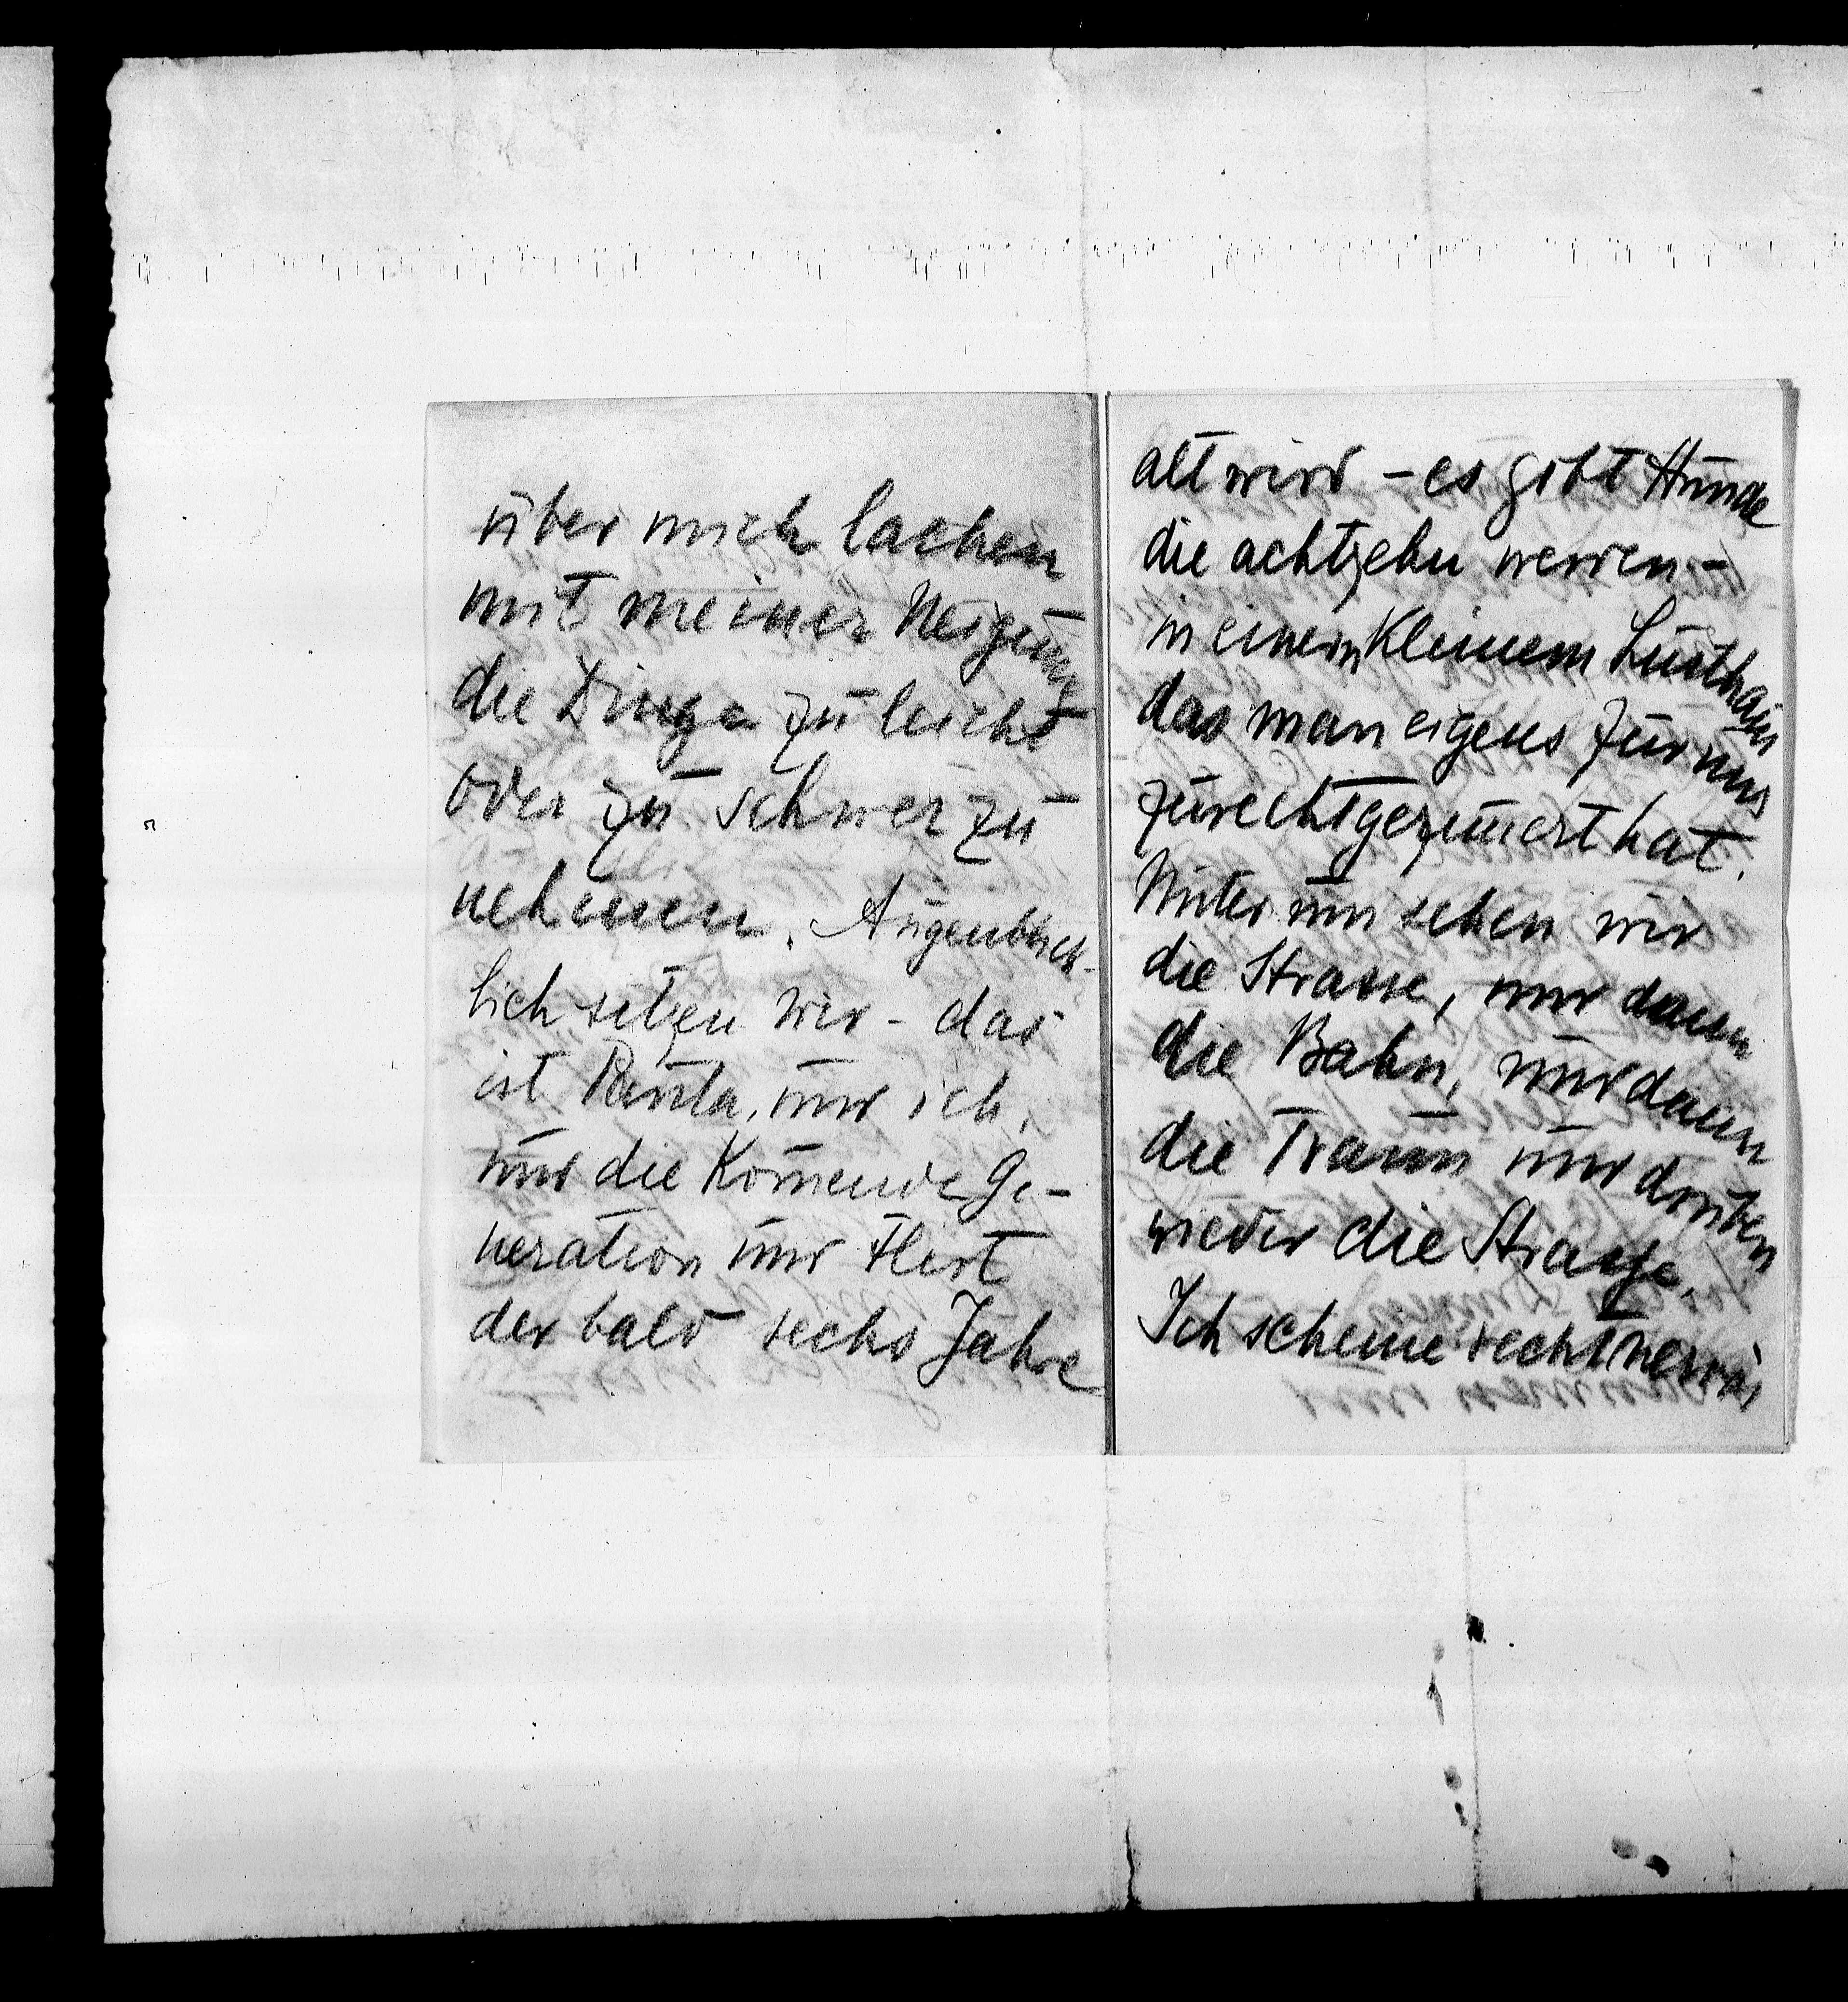 über mich lachen
mit meiner Neigung
die Dinge zu leicht
oder zu schwer zu
nehmen. Augenblick-
lich sitzen wir – das
ist Paula, und ich,
und die kom̄ende Ge-
neration und Flirt
der bald sechs Jahre
alt wird – es gibt Hunde
die achtzehn werden –
in einem kleinem Lusthaus
das man eigens für uns
zurechtgezim̄ert hat.
Unter uns sehen wir
die Strasse, und dann
die Bahn, und dann
die Traun und drüben
wieder die Straße.
Ich scheine recht nervös